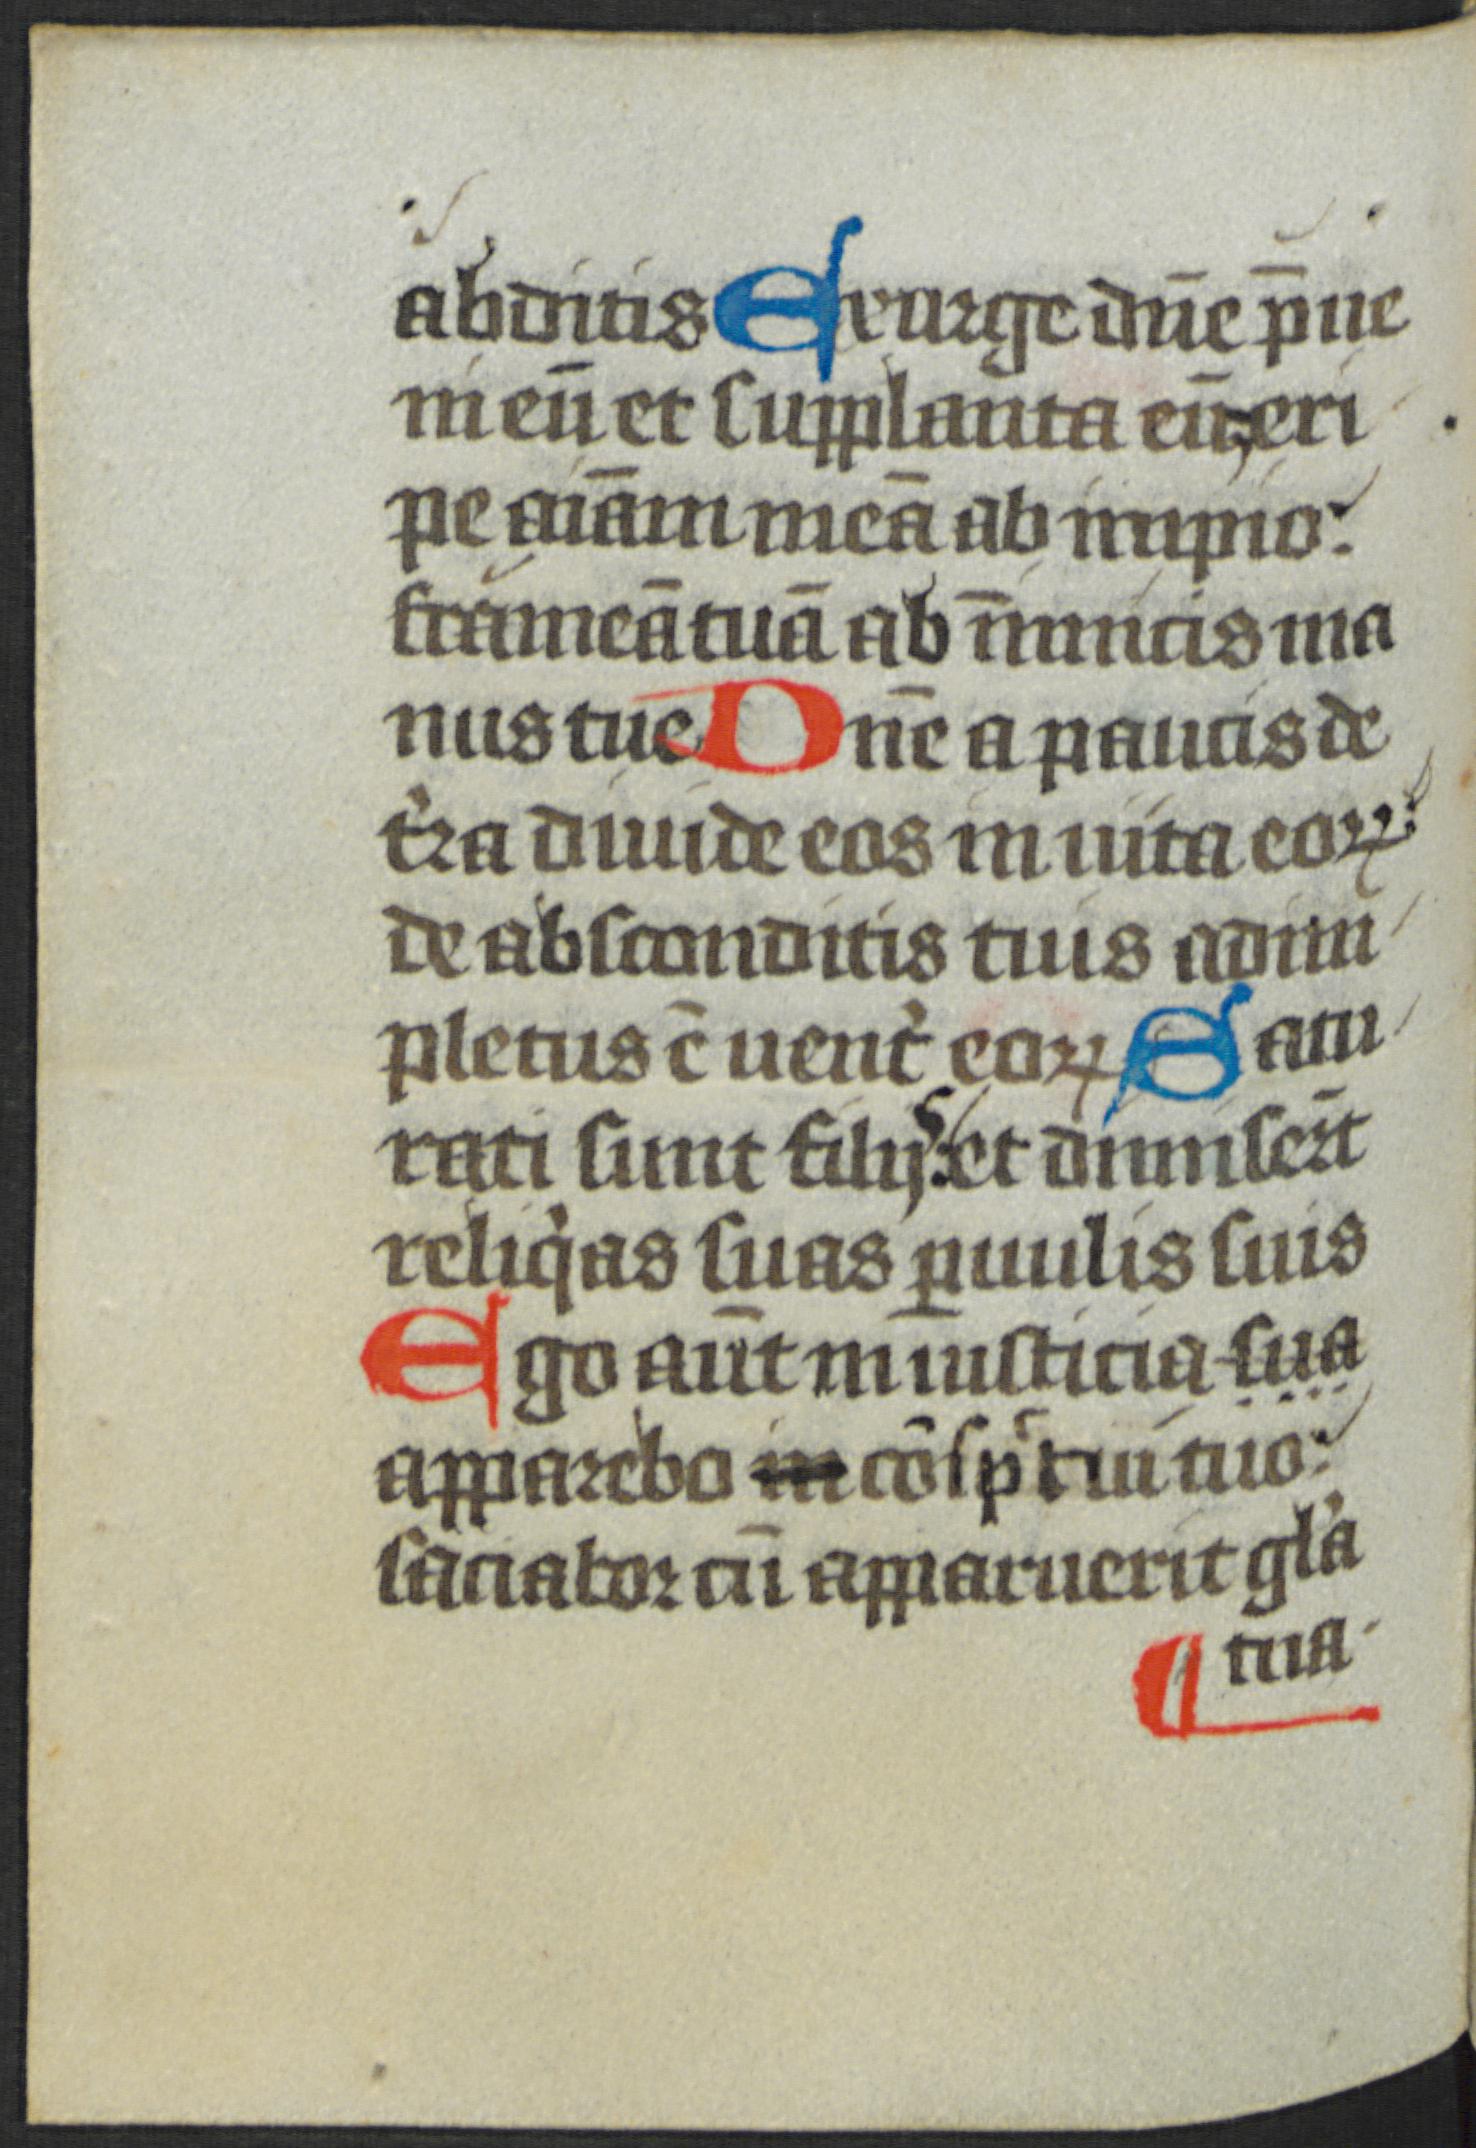 abditis Exurge dn̄e p̄ue
ni eū et supplanta eū eri
pe aīam meā ab impio:
frameā tuā ab īnimicis ma
nus tue Dn̄e a paucis de
t'ra diuide eos in uita eoꝝ:
de absconditis tuis adim
pletus ē uent' eoꝝ Satu
rati sunt filijs: et dimiser̄t
reliq'as suas ꝑuulis suis
Ego aūt in iusticia sua
apparebo in cōsp̄tui tuo:
saciabor cū apparuerit gl'a
tua.